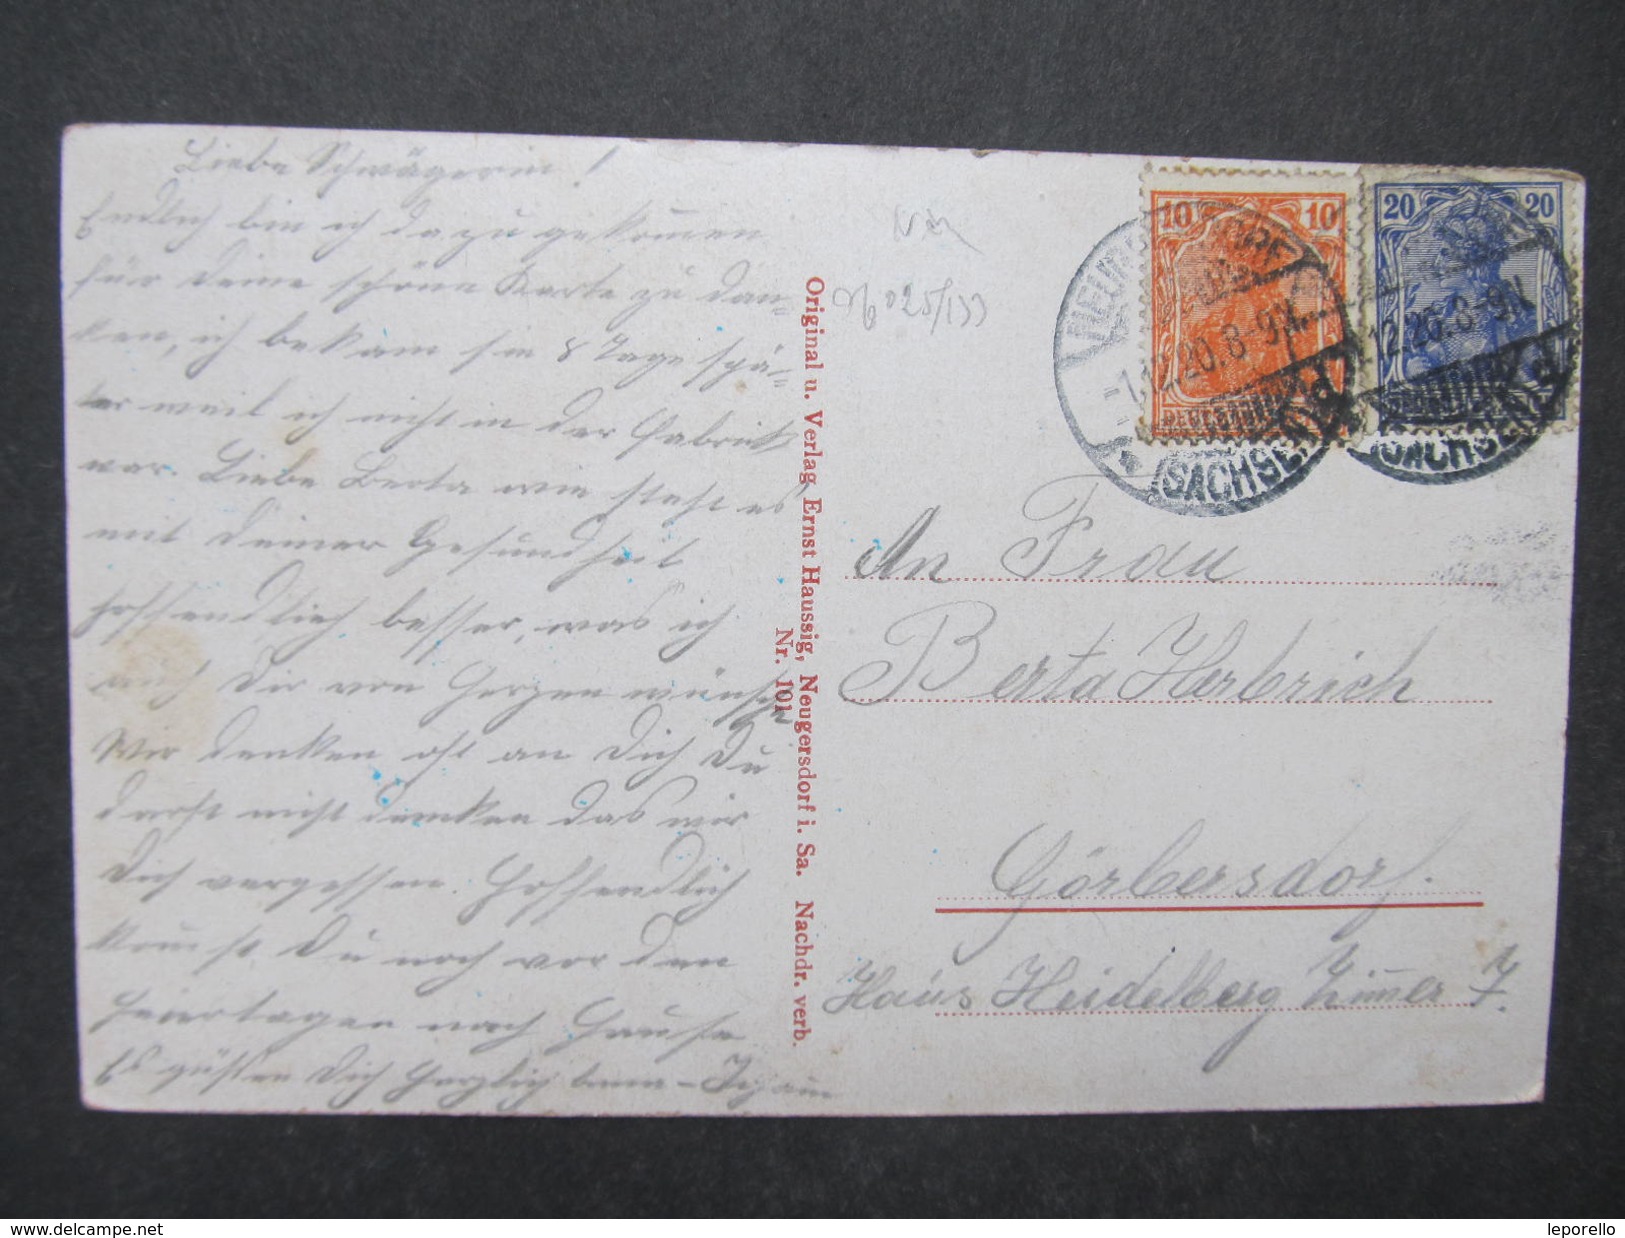 Liebe Schwägerin!
Endlich bin ich dazu gekom̅en
für deine schöne Karte zu dan-
ken, ich bekam sie 8 Tage spä-
ter weil ich nicht in der Fabrick
war. Liebe Berta wie steht es
mit Deiner Gesundheit
hoffendlich besser, was ich
auch Dir von Herzen wünsche
Wir denken oft an Dich Du
darfst nicht denken das wir
Dich vergessen. Hoffendlich
kom̅st Du noch vor den
Feiertagen nach Hause
Es grüßen Dich Herzlich
Original u. Verlag Ernst Haussig, Neugersdorf i. Sa. Nachdr. verb.
Nr. 101
025/133
10 10
20 20
(SACHSEN)
(SACHSEN)
An Frau
Berta Herbrich
Görbersdorf.
Haus Heidelberg Zim̅er 7.
leporello
delcampe.net